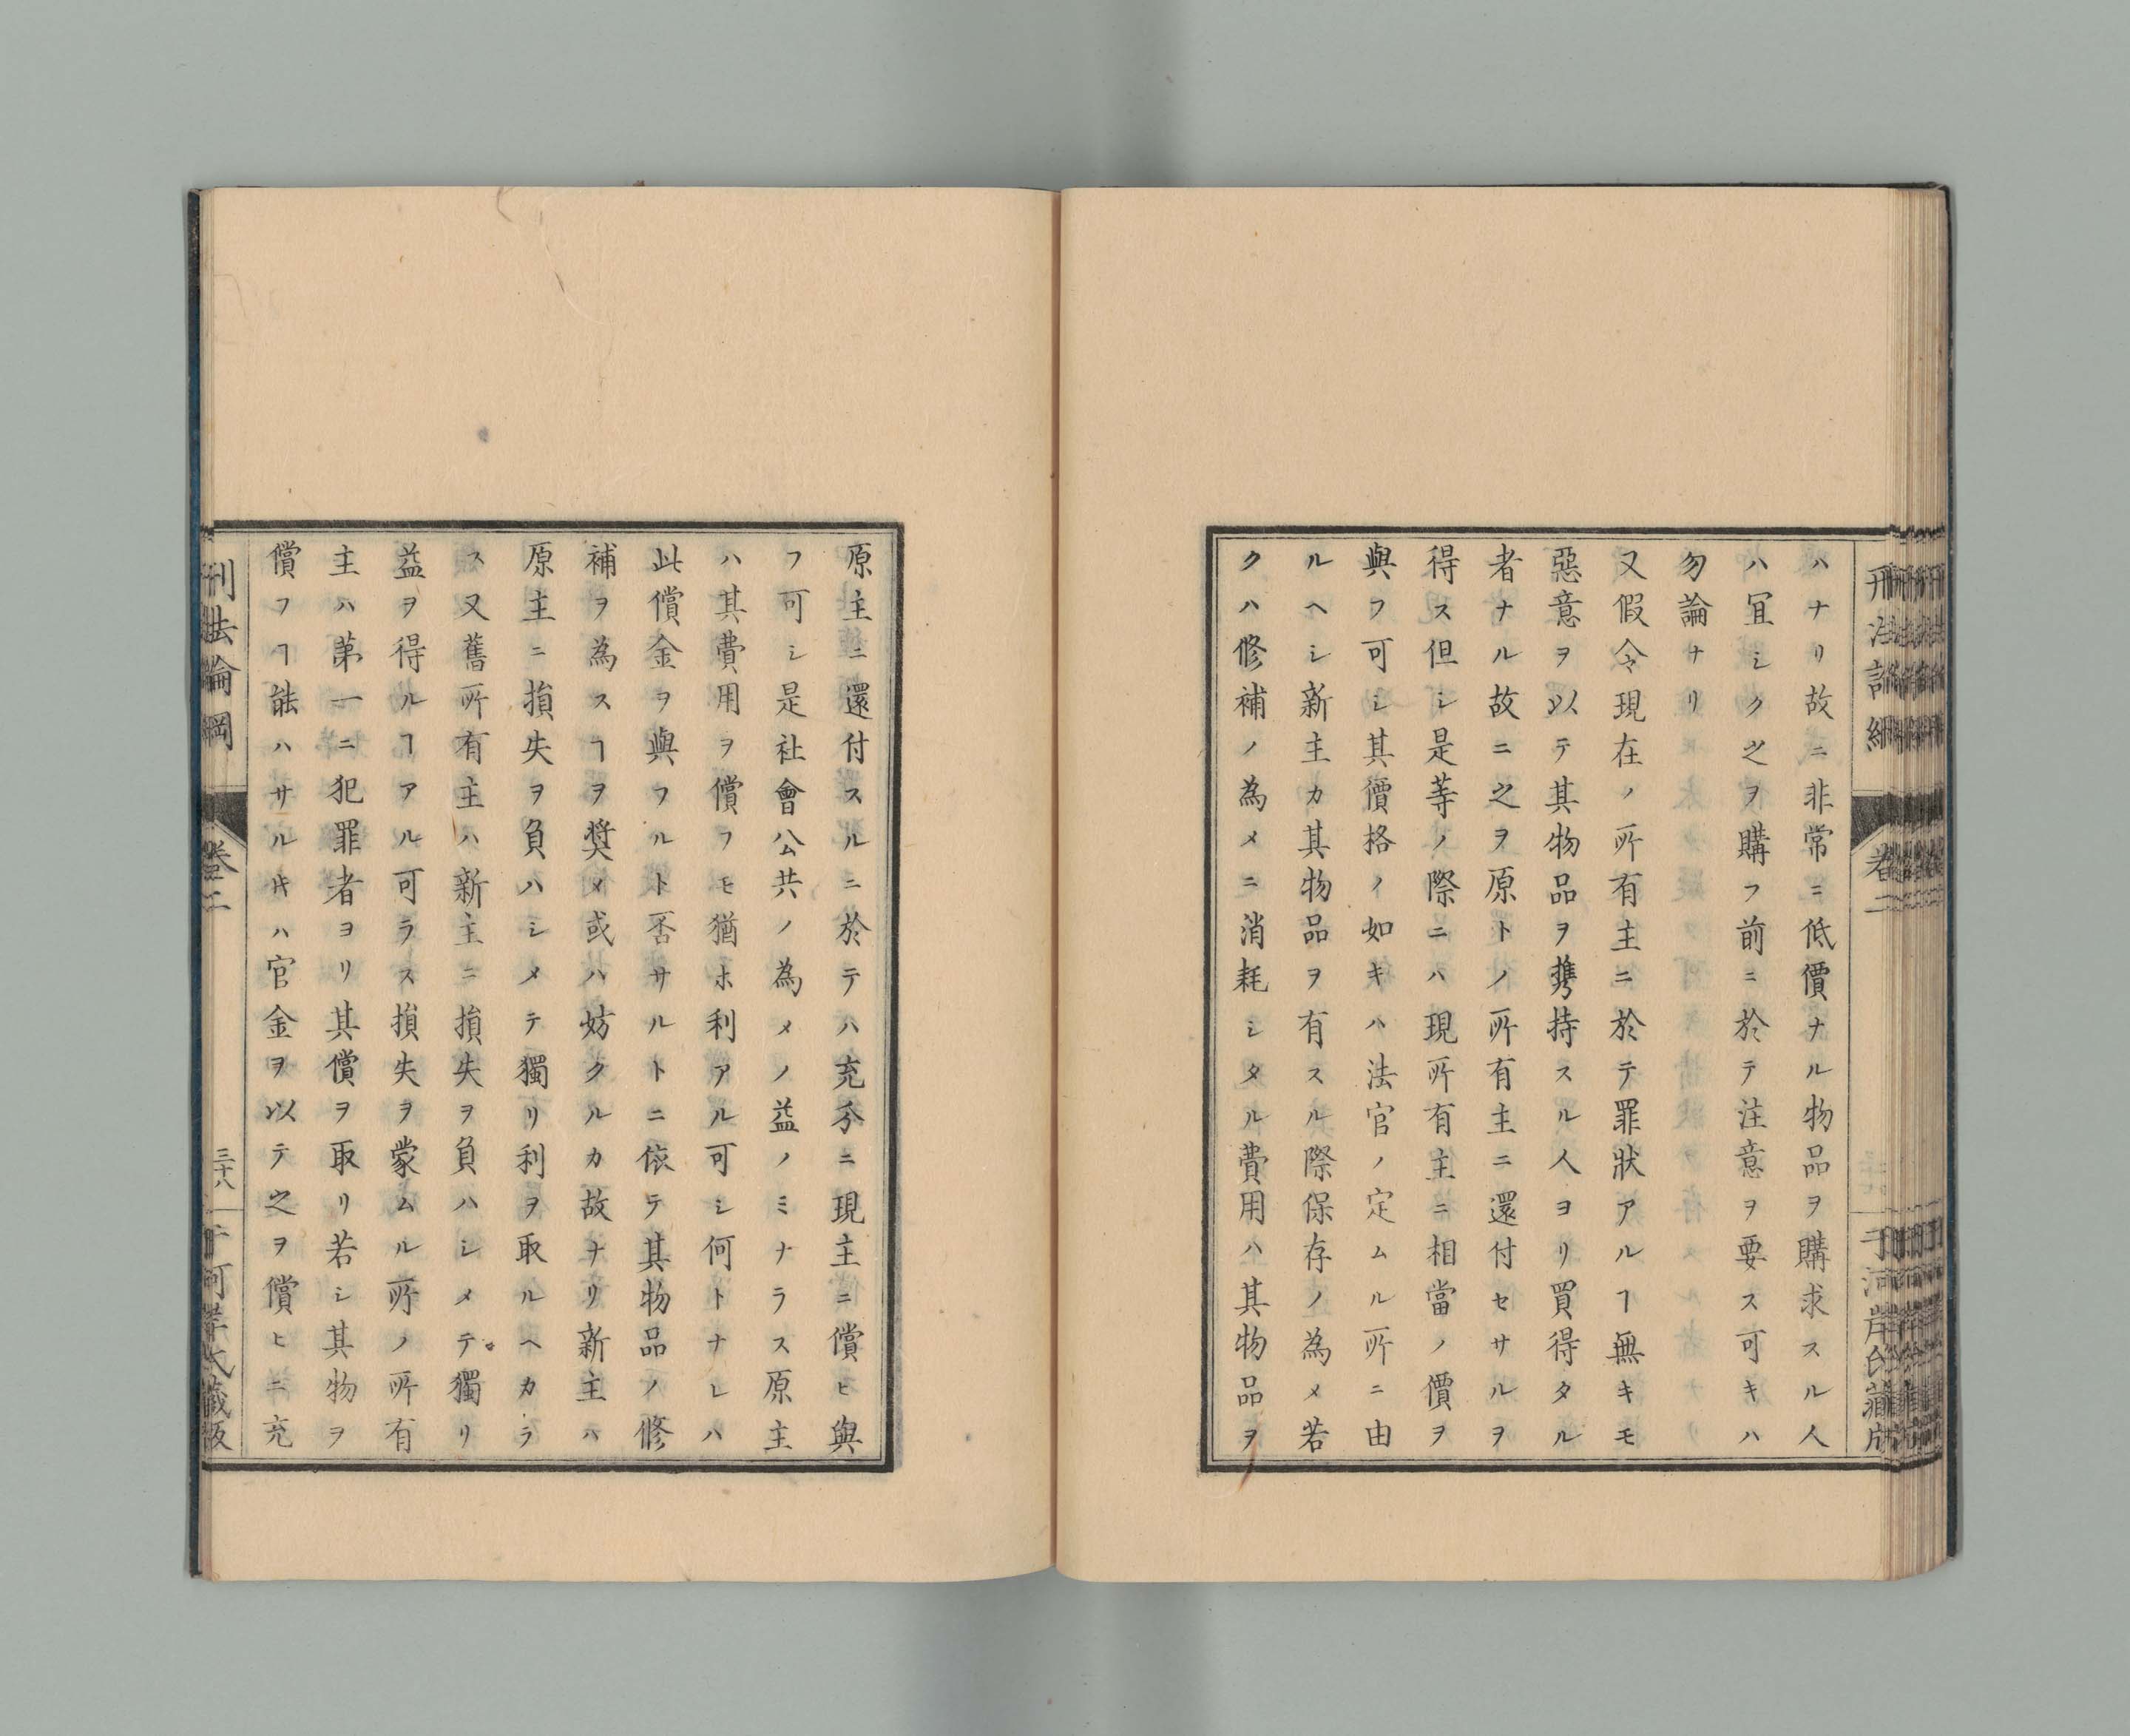 ハナリ故ニ非常ニ低價ナル物品ヲ購求スル人
ハ冝シク之ヲ購フ前ニ於テ注意ヲ要ス可キハ
勿論ナリ
又假令現在ノ所有主ニ於テ罪狀アルヿ無キモ
惡意ヲ以テ其物品ヲ携持スル人ヨリ買得タル
者ナル故ニ之ヲ原トノ所有主ニ還付セサルヲ
得ス但シ是等ノ際ニハ現所有主ニ相當ノ價ヲ
與フ可シ其價格ノ如キハ法官ノ定ムル所ニ由
ルヘシ新主カ其物品ヲ有スル際保存ノ為メ若
クハ修補ノ為メニ消耗シタル費用ハ其物品ヲ
原主ニ還付スルニ於テハ充分ニ現主ニ償ヒ與
フ可シ是社會公共ノ為メノ益ノミナラス原主
ハ其費用ヲ償フモ猶ホ利アル可シ何トナレハ
此償金ヲ與フルト否サルトニ依テ其物品ノ修
補ヲ為スヿヲ奨メ或ハ妨クルカ故ナリ新主ハ
原主ニ損失ヲ負ハシメテ獨リ利ヲ取ルヘカラ
ス又舊所有主ハ新主ニ損失ヲ負ハシメテ獨リ
益ヲ得ルヿアル可ラス損失ヲ蒙ムル所ノ所有
主ハ第一ニ犯罪者ヨリ其償ヲ取リ若シ其物ヲ
償フヿ能ハサルトキハ官金ヲ以テ之ヲ償ヒニ充
刑法論綱
卷二
三十八
于河岸氏藏版